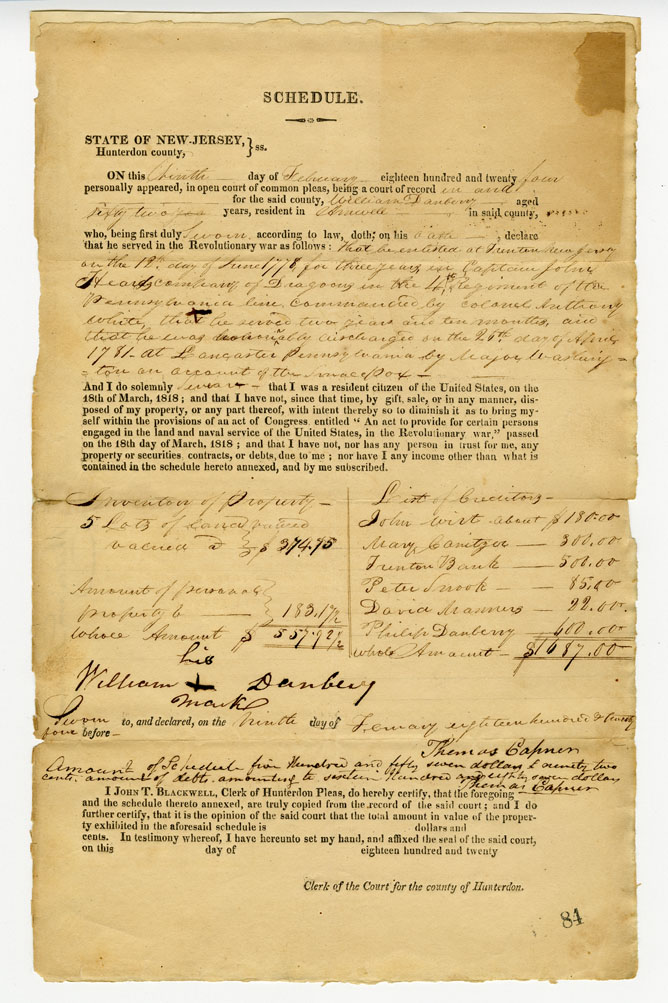 SCHEDULE.
STATE OF NEW-JERSEY, } ss.
Hunterdon county,
ON this Ninth day of February eighteen hundred and twenty four
personally appeared, in open court of common pleas, being a court of record in and
for the said county, William Danbery aged
sixty two years, resident in Amwell in said county,
who, being first duly Sworn, according to law, doth, on his Oath, declare
that he served in the Revolutionary war as follows: that he enlisted at Trenton New Jersey
on the 19th day of June 1778 for three years in Captain John
Heards company of Dragoons in the 4th Regiment of the
Pennsylvania line, commanded by colonel Anthony
White, that he served two years and ten months, and
that he was honorably discharged on the 26th day of April
1781 at Lancaster Pennsylvania by Major Washing-
ton on account of the small Pox
And I do solemnly swear that I was a resident citizen of the United States, on the
18th of March, 1818; and that I have not, since that time, by gift, sale, or in any manner, dis-
posed of my property, or any part thereof, with intent thereby so to diminish it as to bring my-
self within the provisions of an act of Congress, entitled "An act to provide for certain persons
engaged in the land and naval service of the United States, in the Revolutionary war," passed
on the 18th day of March, 1818; and that I have not, nor has any person in trust for me, any
property or securities, contracts, or debts, due to me; nor have I any income other than what is
contained in the schedule hereto annexed, and by me subscribed.
Inventory of Property
5 Lots of Land valued
valued a $ 374.75
Amount of personal
property 183.17½
Whole Amount $ 557.92½
List of Creditors
John Wirt about $ 180.00
Mary 300.00
Trenton Bank 500.00
Peter Snook 85.00
David Manners 22.00
Philip Danbery 600.00
whole Amount $1687.00
his
William + Danbery
mark
Sworn to, and declared, on the Ninth day of February eighteen hundred & twenty
four before
Thomas Capner
Amount of Schedule five Hundred and fifty seven dollars & ninety two
cents. amount of debt, amounting to sixteen hundred and eighty seven dollars
Thomas Capner
I JOHN T. BLACKWELL, Clerk of Hunterdon Pleas, do hereby certify, that the foregoing
and the schedule thereto annexed, are truly copied from the record of the said court; and I do
further certify, that it is the opinion of the said court that the total amount in value of the proper-
ty exhibited in the aforesaid schedule is dollars and
cents. In testimony whereof, I have hereunto set my hand, and affixed the seal of the said court,
on this day of eighteen hundred and twenty
Clerk of the Court for the county of Hunterdon.
84